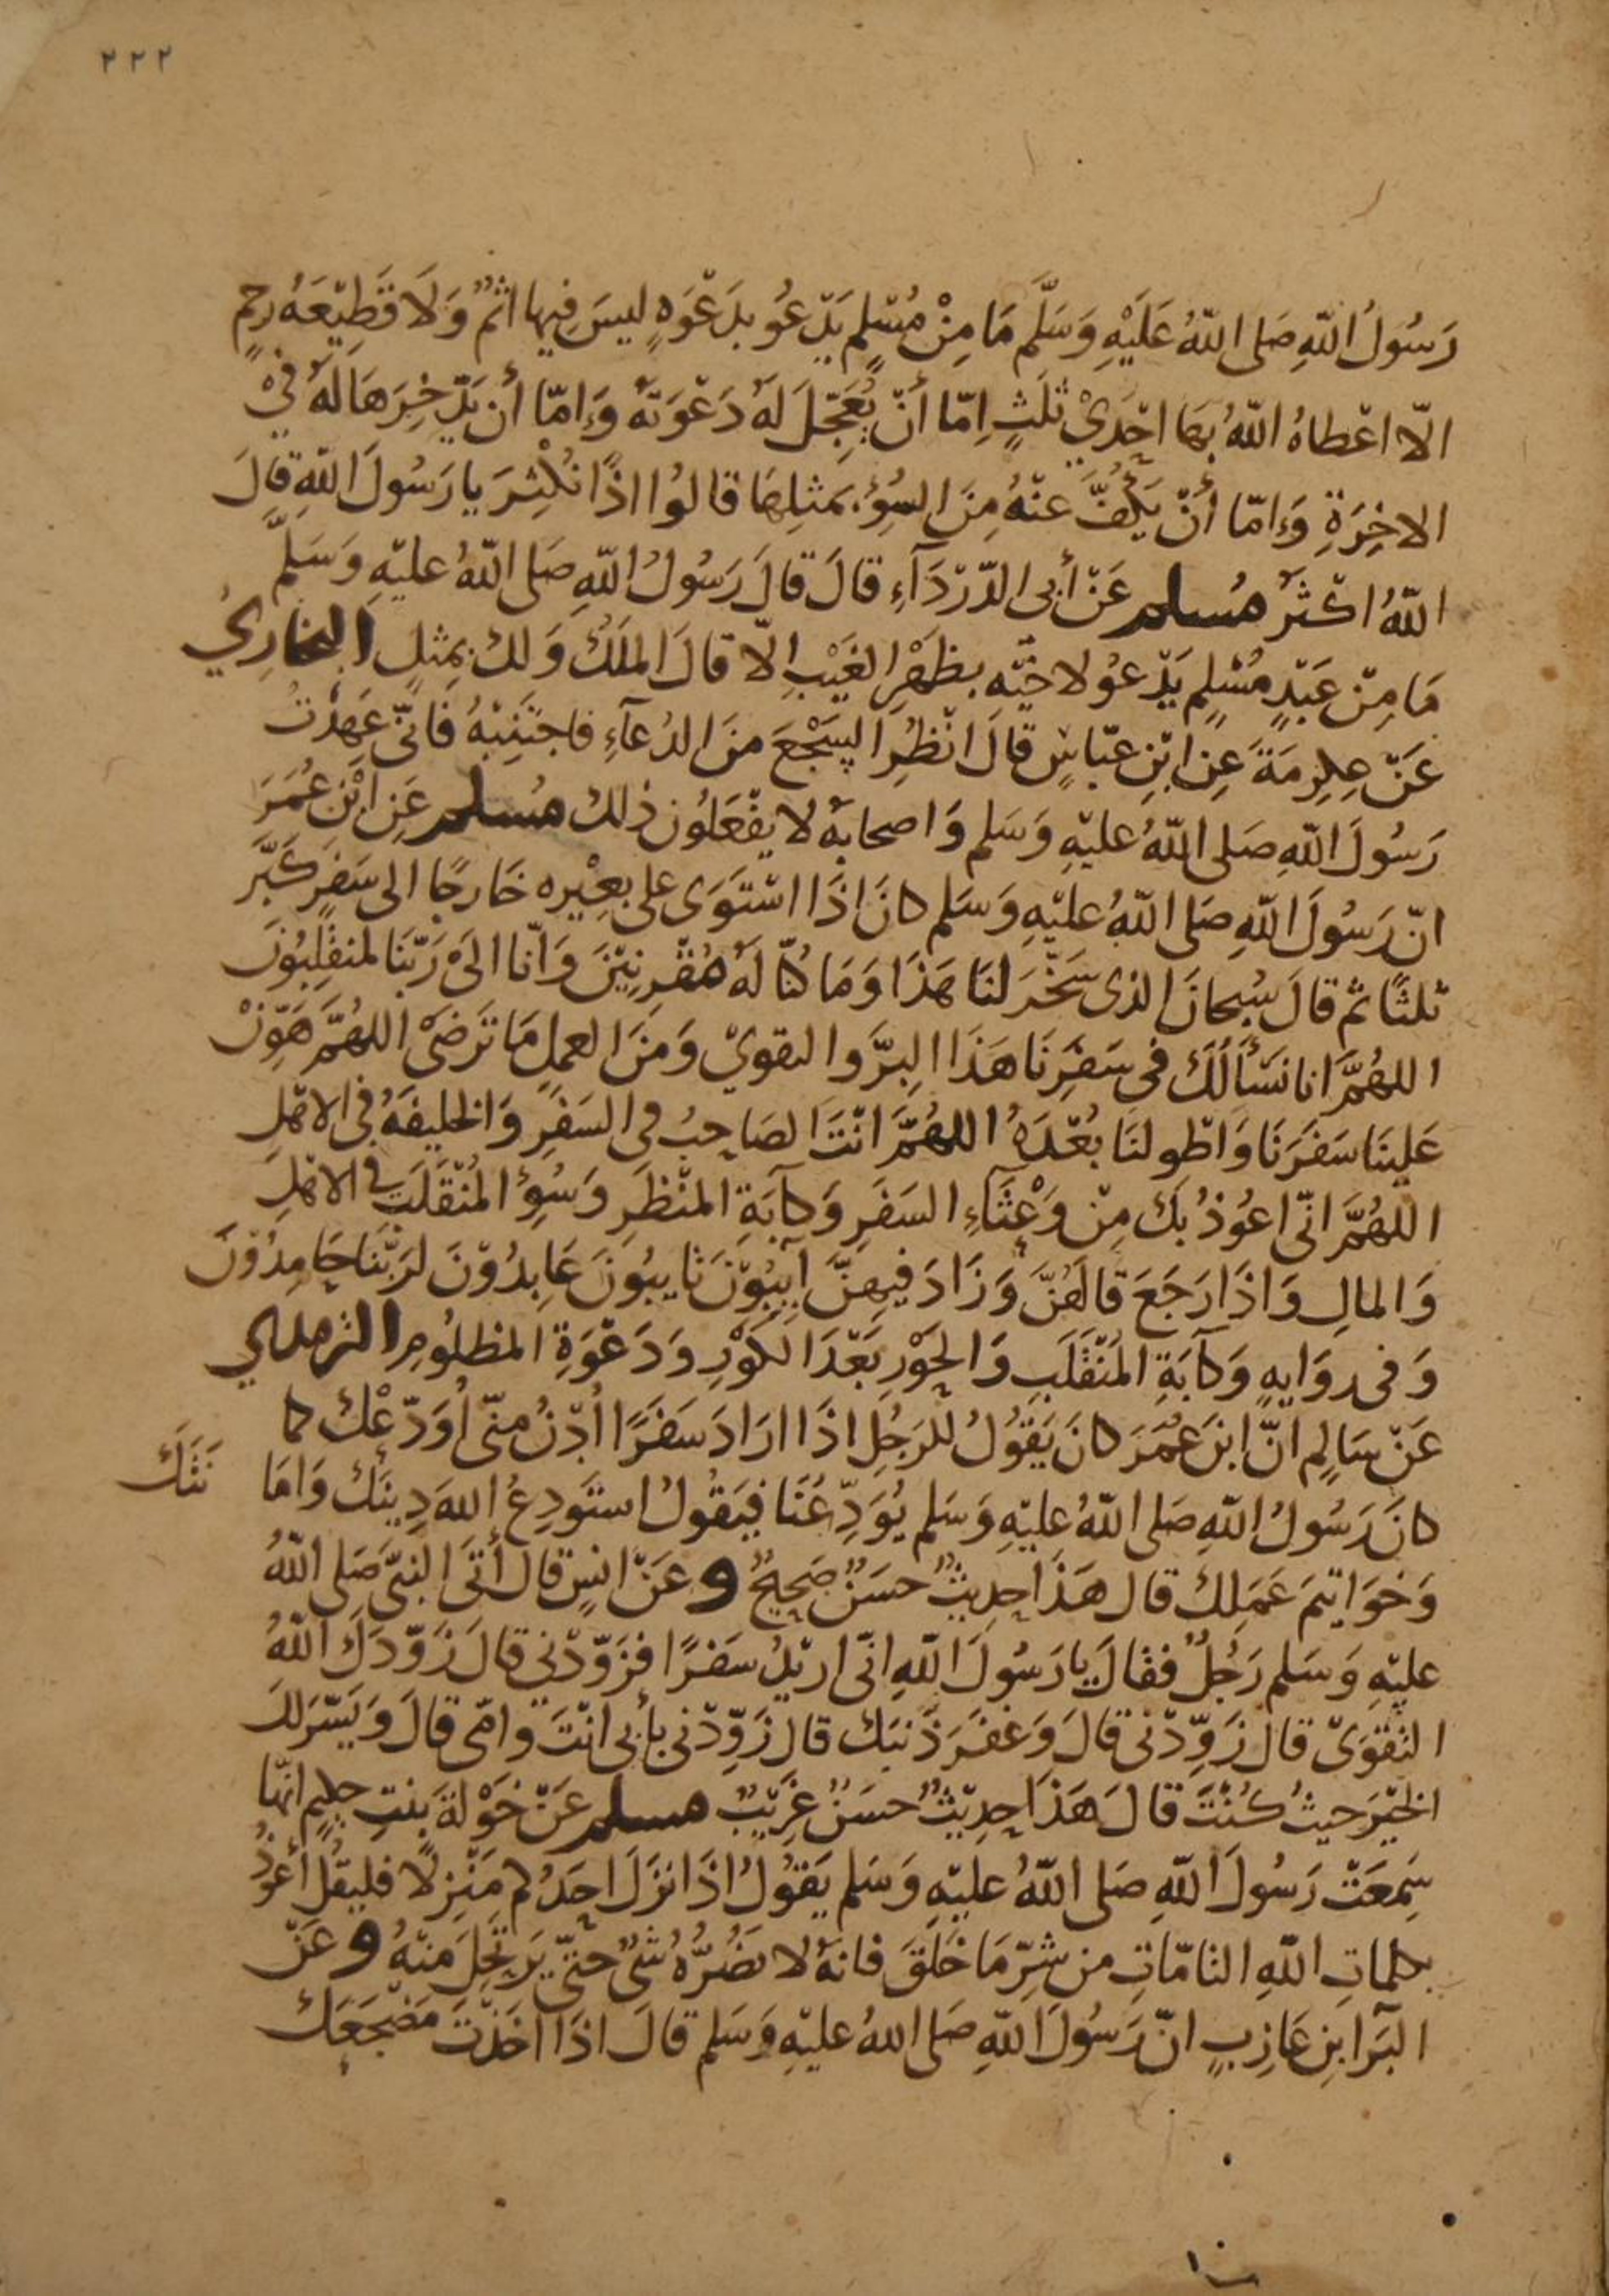 ٢٢٢
رَسُولُ اللّٰهِ صَلى اللّٰهُ عَلَيْهِ وَسَلَّم مَا مِنْ مُسْلِمٍ يَدْعُو بدَعْوَهٍ ليسَ فِيها اثمٌ وَلَا قَطِيْعَهُ رحِمٍ
الّا اعْطاهُ اللّٰهُ بِهَا احْدِيْ ثلَثٍ اِمّا أنْ يُعَجِّلَ لَهٗ دَعْوَتَهٗ وَاِمّا أن يَدّخِرَهَا لَهٗ فيْ
الاخِرَةِ وَاِمّا أنْ يَكُفَّ عنْهُ مِنَ السُوْءِ بمثلِهَا قالُوا اذًا نُكْثِرَ يا رَسُولَ اللّٰهِ قالَ
اللّٰهُ اكْثَرُ مُسلم عَنْ أبى الدّرْدَآءِ قالَ قالَ رَسُولُ اللّٰهِ صَلى اللّٰهُ عليْهِ وَسَلَّم
مَا مِنْ عَبْدٍ مُسْلِمٍ يَدْعُو لاخِيْهِ بظهْرِ الغَيْبِ الّا قالَ المَلَكُ وَلكَ بمِثلٍ البخارِيُ
عَنْ عِكرِمَةَ عَنِ ابْنِ عبّاسٍ قالَ انْظُرِ السَّجْعَ منَ الدُعآءِ فاجتَنِبْهُ فَانّى عَهدْتُ
رَسُولَ اللّٰهِ صَلى اللّٰهُ عليْهِ وَسَلم وَاصحابهٗ لا يفْعَلُون ذلكَ مُسلم عَنِ ابْن عُمَرَ
انّ رَسُولَ اللّٰهِ صَلى اللّٰهُ عليْهِ وَسَلم كانَ اذَا اسْتَوَى على بعِيْره خارجًا الى سَفرٍ كَبَّرَ
ثلثًا ثم قالَ سُبحانَ الذى سَخّرَ لنَا هَذَا وَمَا كنّا لَهٗ مُقْرِنِيْنَ وَانّا الىَ رَبّنَا لمنقَلِبُونَ
اللهُمَّ انا نسْأَلُكَ فى سَفَرِنَا هَذَا البِرَّ والتقويْ وَمنَ العملِ مَا تَرضىْ اللهُمَّ هَوِّنْ
عَلينَا سَفَرَنَا وَاطْو لنَا بُعْدَهُ اللهُمَّ انْتَ الصَاحِبُ فى السَفرِ وَالخليفَهُ فى الاهْلِ
اللهُمَّ انّى اعُوذُ بكَ مِنْ وَعْثَآءِ السَفَرِ وَكآبَةِ المنْظَرِ وَسُوْءِ المُنْقَلَبِ فى الاهْلِ
وَالمالِ وَاذَا رَجَعَ قالهُنَّ وَزَادَ فيهِنَّ آيبُوْنَ تايبُونَ عَابدُوْنَ لرَبّنَا حَامِدُوْنَ
وَفى روَايهٍ وَكآبَةِ المُنْقَلَبِ وَالحَوْرِ بَعْدَ الكَوْرِ وَدَعْوَةِ المظلُومِ الترمذي
عَنْ سَالمٍ انّ ابنَ عُمَرَ كانَ يَقُولُ للرَجُلِ اذَا ارَادَ سَفَرًا أُدْنُ منّى أوَدّعْكَ كما
كانَ رَسُولُ اللّٰهِ صَلى اللّٰهُ عليْهِ وَسَلم يُوَدِّعُنَا فيَقُولُ استَودِعُ اللهَ دِينَكَ وَامَا
نَتَكَ
وَخَوَاتيمَ عَمَلِكَ قال هَذَا حدِيثٌ حسَنٌ صَحِيحٌ وعَنْ انسٍ قال أتَى النبىَّ صَلى اللّٰهُ
عليْهِ وَسَلم رَجُلٌ فقالَ يا رَسُولَ اللّٰهِ انّى اريْدُ سَفرًا فزَوّدْني قالَ زَوّدَكَ اللّٰهُ
التقوَىْ قال زَوِّدْنى قالَ وَغفَرَ ذَنبَكَ قال زَوِّدْنى بأبى انْتَ وامّى قالَ وَيَسّرَ لكَ
الخيْرَ حيثُ كنْتَ قالَ هَذَا حدِيْثٌ حسَنٌ غرِيْبٌ مسلم عَنْ خَوْلةَ بنتِ حكيمٍ انّها
سَمِعَتْ رَسُولَ اللّٰهِ صَلى اللّٰهُ عليْهِ وَسَلم يَقُولُ اذَا نزَلَ احَدُكم مَنْزِلًا فليَقُلْ أعُوْذُ
بكلماتِ اللّٰهِ التامّاتِ من شرّ مَا خَلَقَ فانهٗ لا يَضُرُّهُ شىٌ حتّى يَرتحِلَ منْهُ وعَنْ
البَرَا بنِ عَازِبٍ انّ رَسُولَ اللّٰهِ صَلى اللهُ عليْهِ وَسَلم قالَ اذَا اخَذْتَ مَضْجَعَكَ